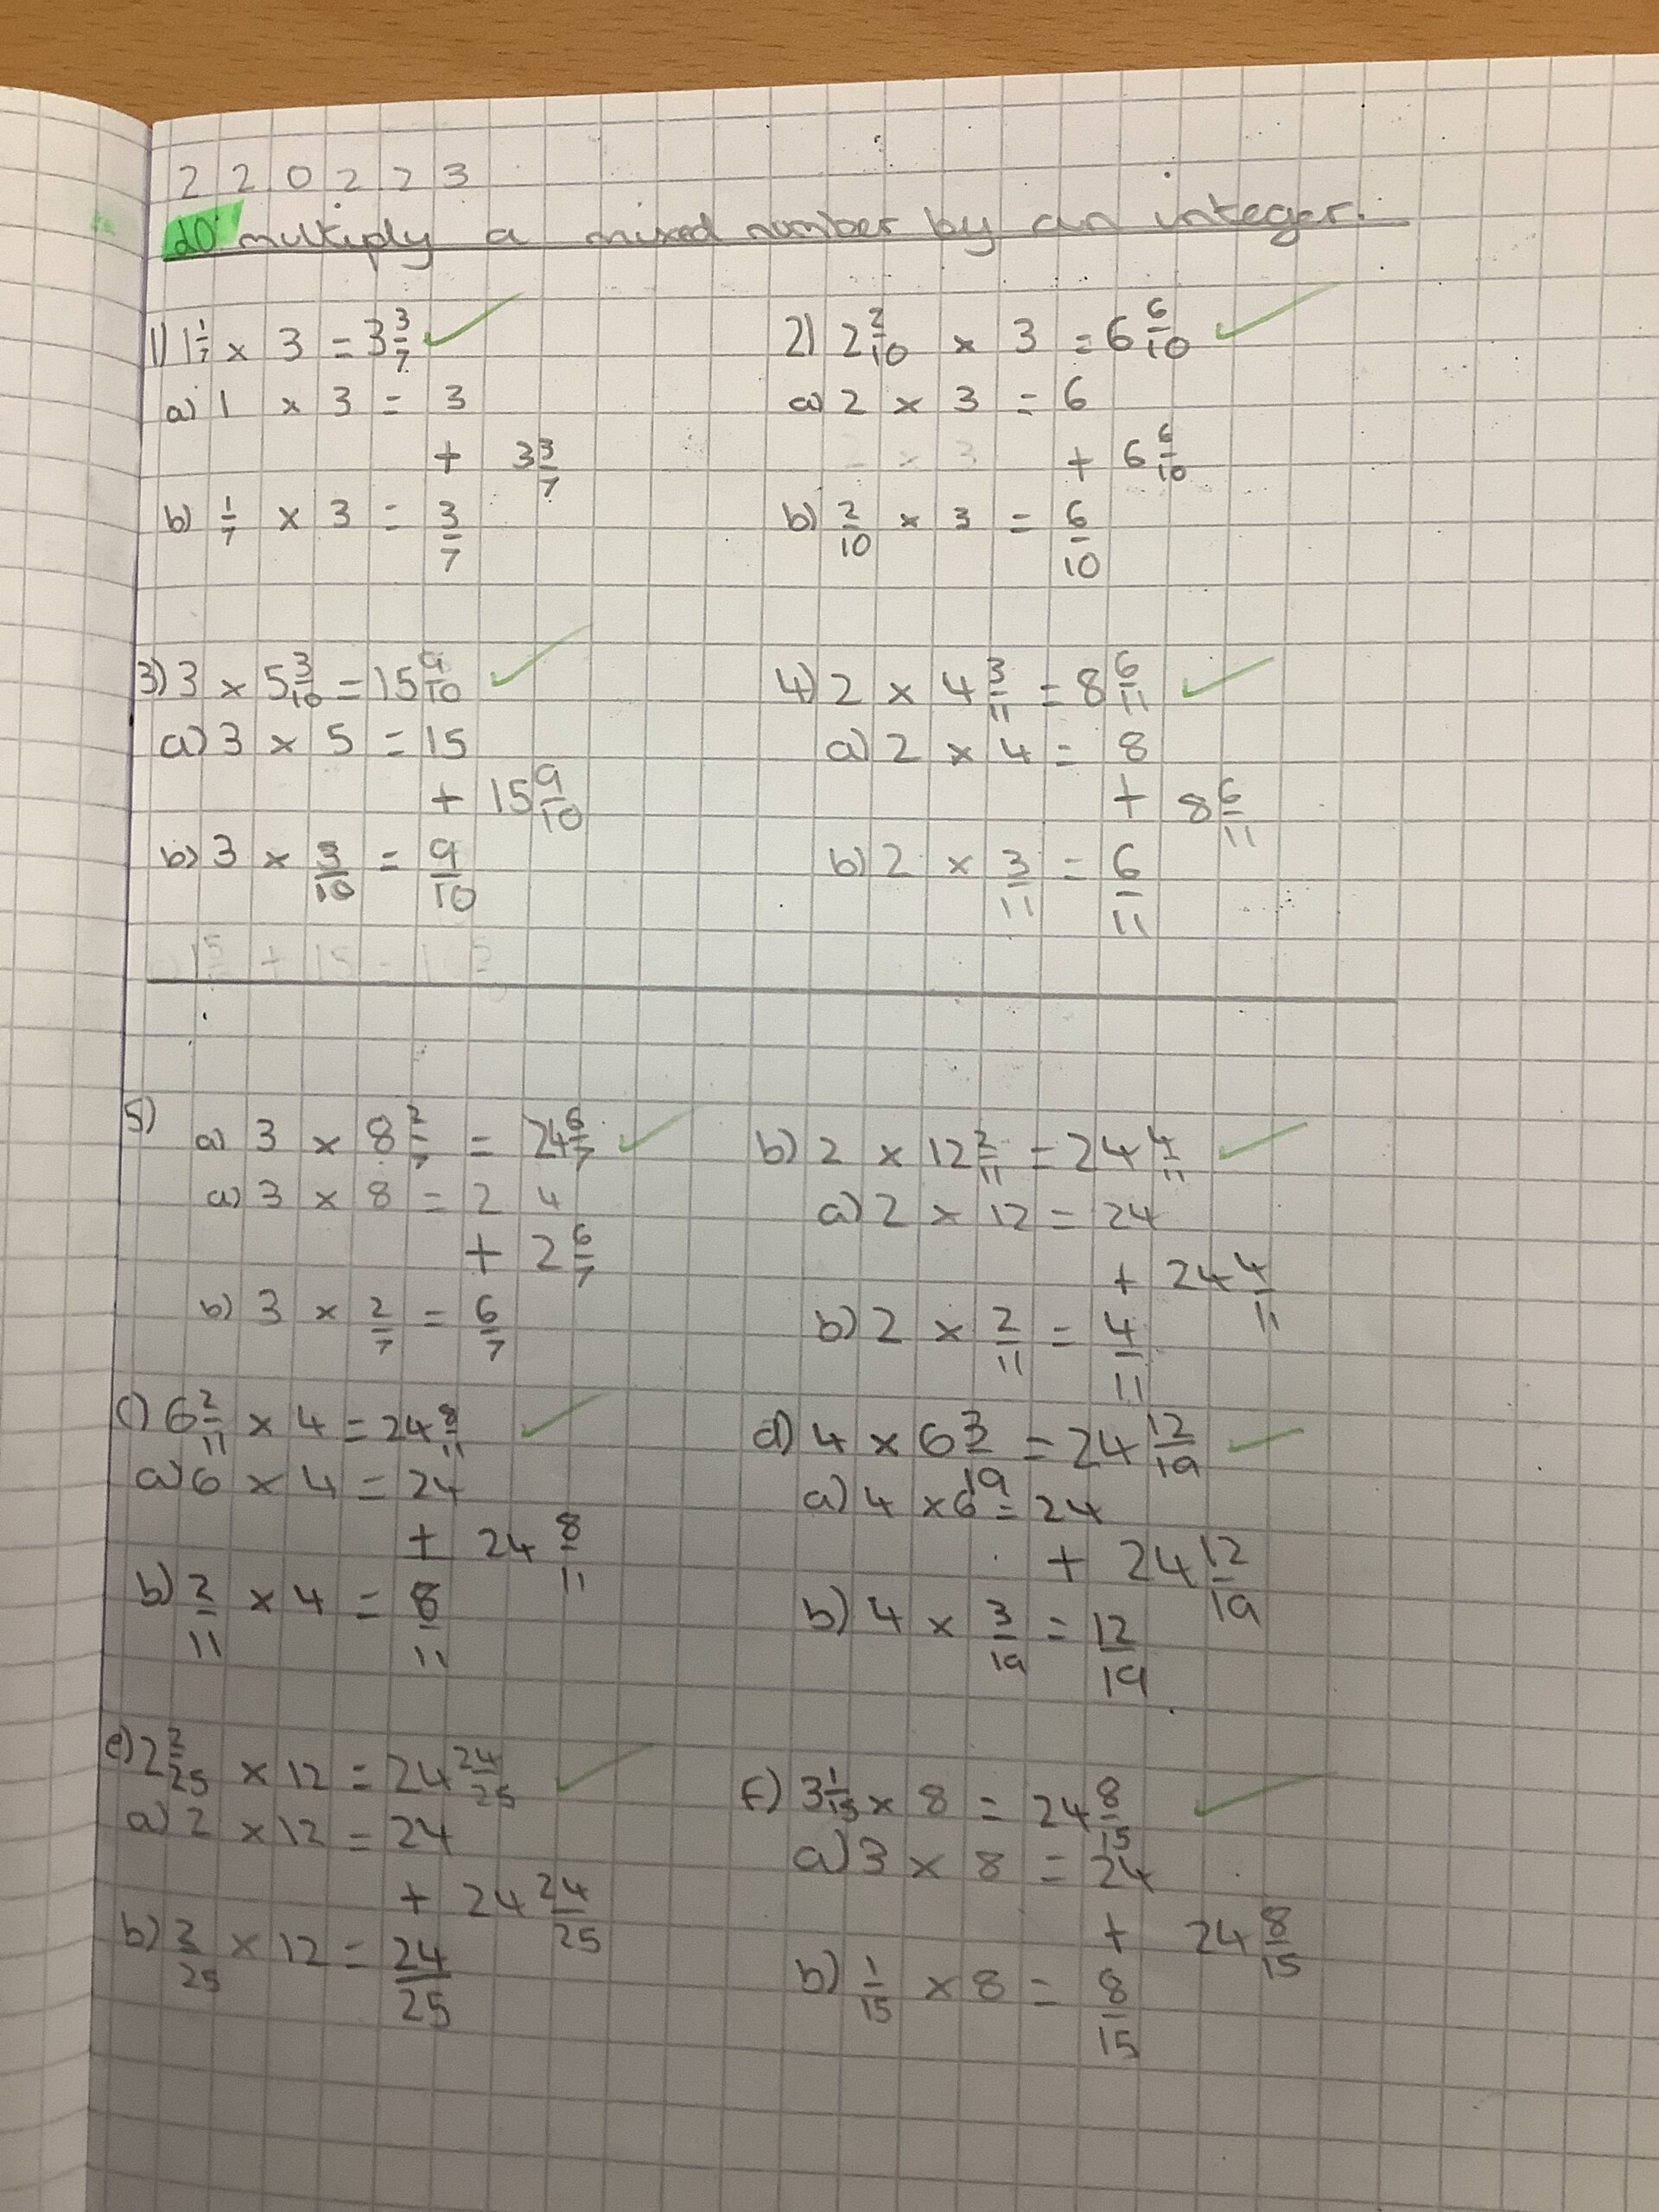 220223
LO: multiply a mixed number by an integer.
1) 1 1/7 × 3 = 3 3/7
a) 1 × 3 = 3
+ 3 3/7
b) 1/7 × 3 = 3/7
2) 2 2/10 × 3 = 6 6/10
a) 2 × 3 = 6
+ 6 6/10
b) 2/10 × 3 = 6/10
3) 3 × 5 3/10 = 15 9/10
a) 3 × 5 = 15
+ 15 9/10
b) 3 × 3/10 = 9/10
4) 2 × 4 3/11 = 8 6/11
a) 2 × 4 = 8
+ 8 6/11
b) 2 × 3/11 = 6/11
5)
a) 3 × 8 2/7 = 24 6/7
a) 3 × 8 = 24
+ 2 6/7
b) 3 × 2/7 = 6/7
b) 2 × 12 2/11 = 24 4/11
a) 2 × 12 = 24
+ 24 4/11
b) 2 × 2/11 = 4/11
c) 6 2/11 × 4 = 24 8/11
a) 6 × 4 = 24
+ 24 8/11
b) 2/11 × 4 = 8/11
d) 4 × 6 3/19 = 24 12/19
a) 4 × 6 = 24
+ 24 12/19
b) 4 × 3/19 = 12/19
e) 2 2/25 × 12 = 24 24/25
a) 2 × 12 = 24
+ 24 24/25
b) 2/25 × 12 = 24/25
f) 3 1/15 × 8 = 24 8/15
a) 3 × 8 = 24
+ 24 8/15
b) 1/15 × 8 = 8/15